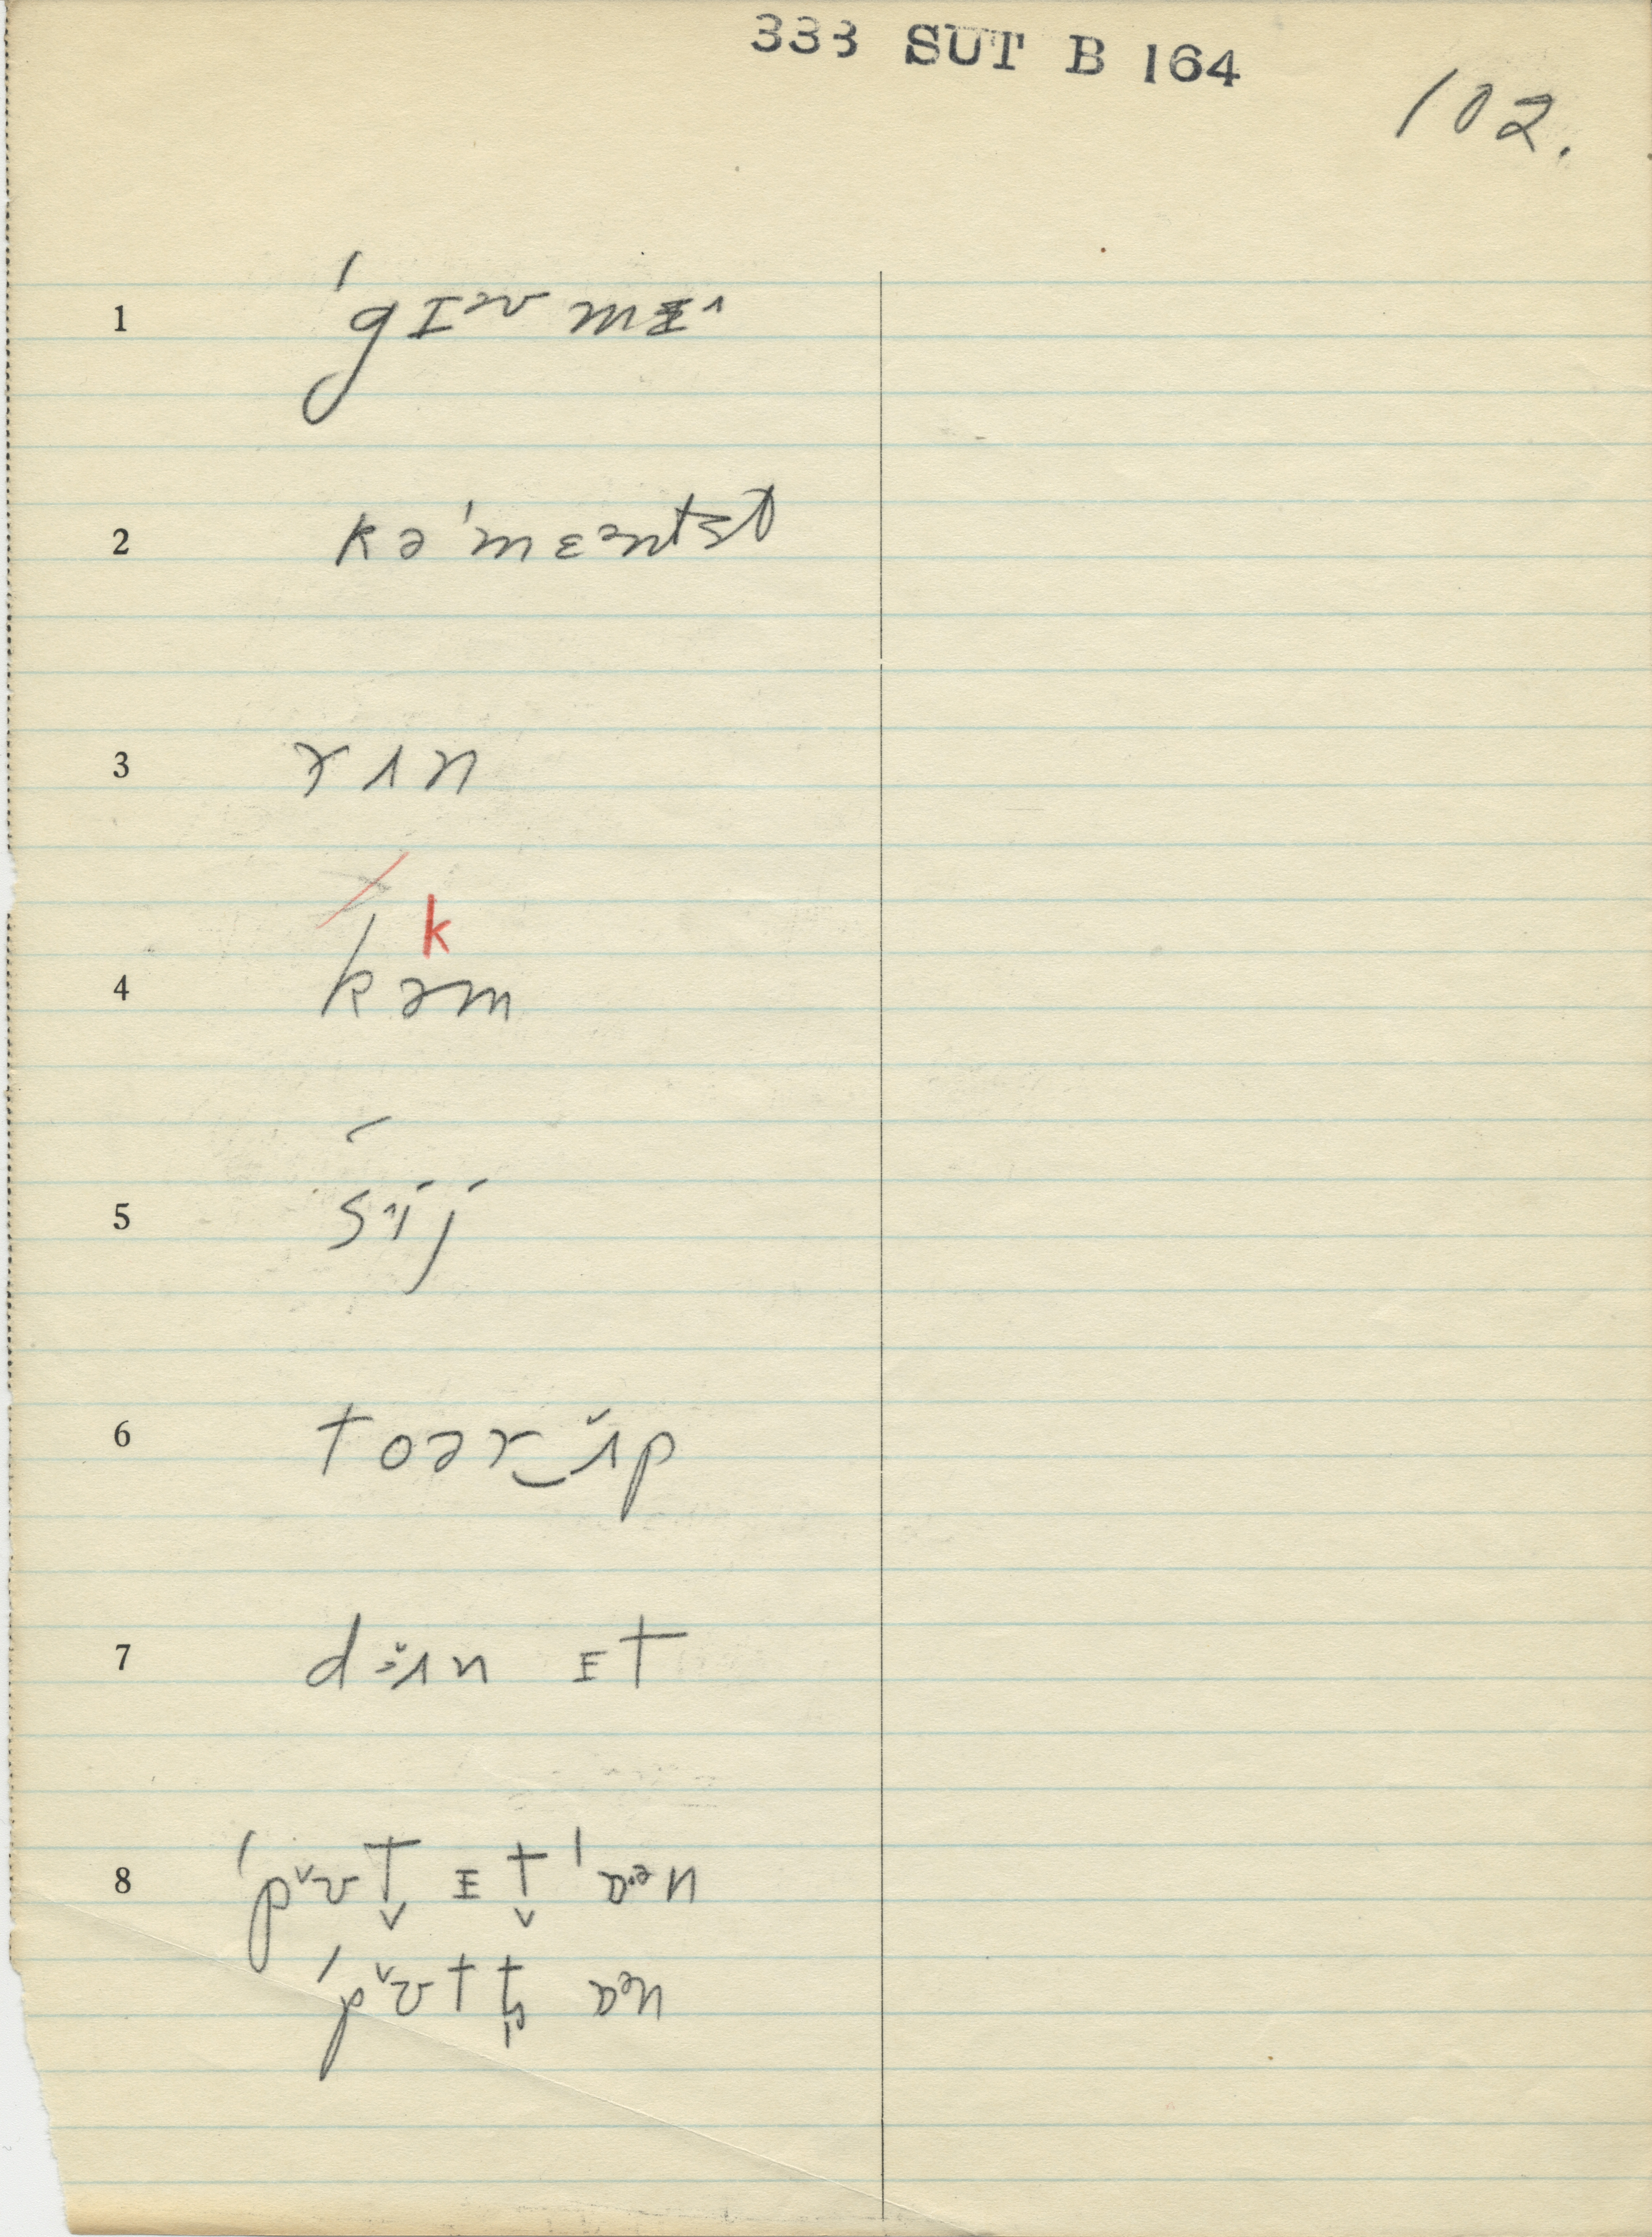 333 SUT B 164
102.
1 ˈgɪᵊv mɪ^
2 kəˈmɛᵊntst
3 rʌn
4 kəm
k
5 sᶺij
6 toər‿ʌ̆p
7 dʌ̆n ɪt
8 ˈpᵛʊt ɪt ˈɒᵊn
ˈpᵛʊt t ɒᵊn